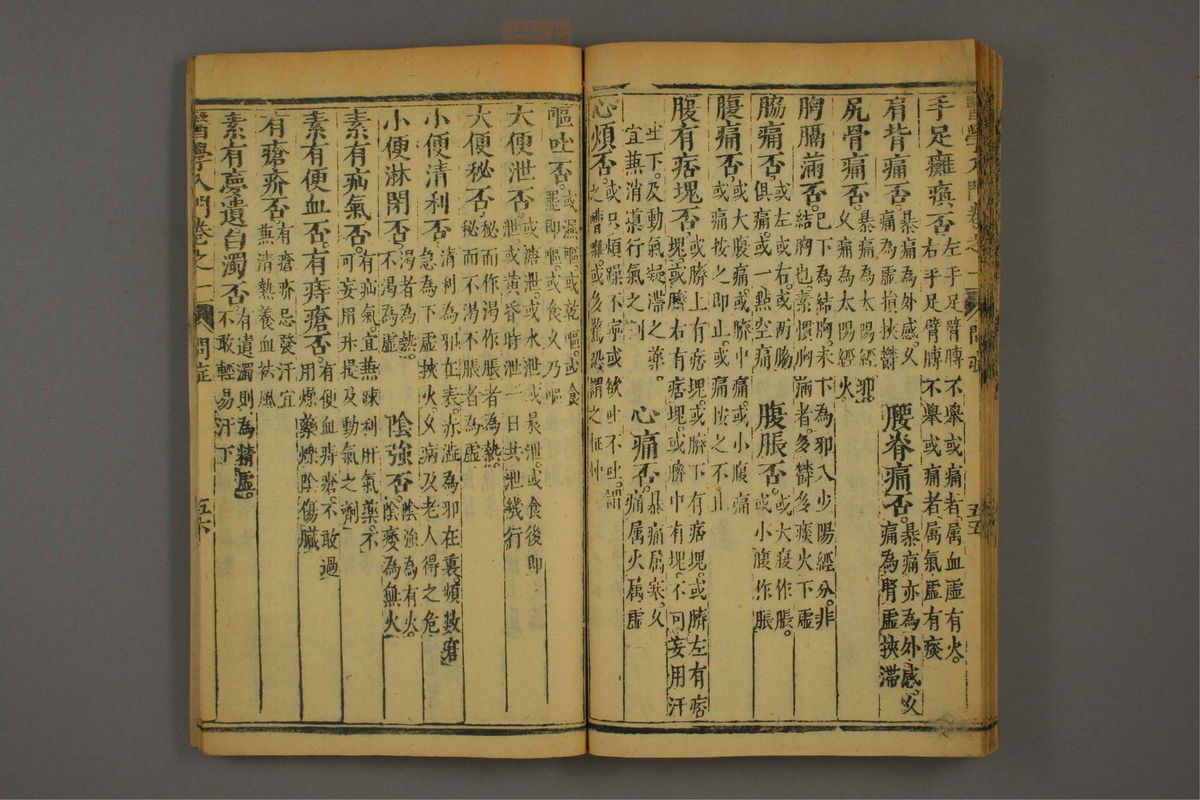 手足癱瘓否左手足臂膊不舉或痛者属血虛有火右手足臂膊不舉或痛者属氣虛有痰
肩背痛否暴痛為外感久痛為虛損挾欝 腰脊痛否暴痛亦為外感久痛為腎虛挾滯
尻骨痛否暴痛為太陽經邪久痛為太陽經火
胸膈滿否已下為結胸未下為邪入少陽經分非結胸也素慣胸滿者多欝多痰火下虛
脇痛否或左或右或兩脇俱痛或一點空痛 腹脹否或大腹作脹或小腹作脹
腹痛否或大腹痛或臍中痛或小腹痛或痛按之即止或痛按之不止
腹有痞塊否或臍上有痞塊或臍下有痞塊或臍左有痞塊或臍右有痞塊或臍中有塊不可妄用汗
吐下及動氣凝滯之藥宜兼消導行氣之劑 心痛否暴痛属寒久痛属火属虛
心煩否或只煩躁不寧或欲吐不吐謂之嘈雜或多驚恐謂之怔忡
嘔吐否或濕嘔或乾嘔或食罷即嘔或食久乃嘔
大便泄否或溏泄或水泄或晨泄或食後即泄或黃昏時泄一日共泄幾行
大便秘否秘而作渴作脹者為熱秘而不渴不脹者為虛
小便清利否清利為邪在表赤澁為邪在裏頻數窘急為下虛挾火久病及老人得之危
小便淋閉否渴者為熱不渴為虛 陰強否陰強為有火陰痿為無火
素有疝氣否有疝氣宜兼疎利肝氣藥不可妄用升提及動氣之劑
素有便血否有痔瘡否有便血痔瘡不敢過用燥藥爍陰傷臟
有瘡疥否有瘡疥忌發汗宜兼清熱養血袪風
素有夢遺白濁否有遺濁則為精虛不敢輕易汗下
醫學入門卷之一 問症 五六